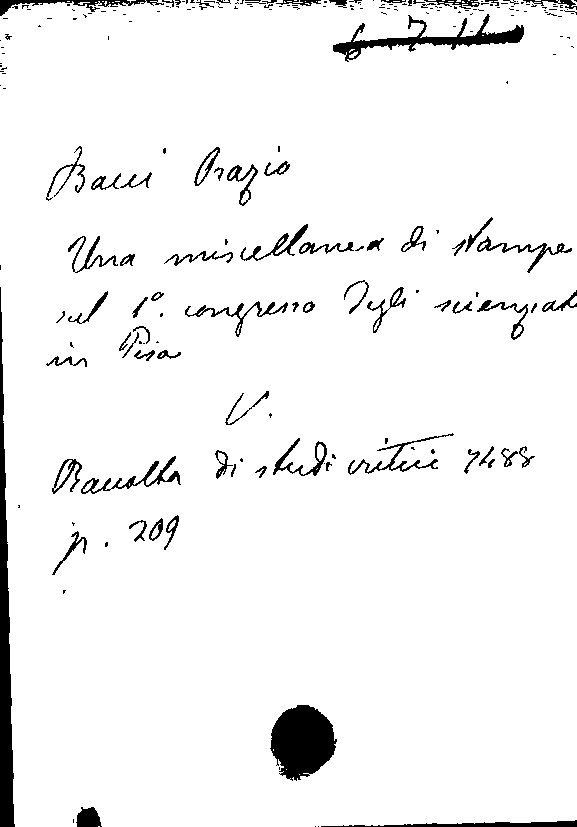 6 7 11
Bacci Orazio
Una miscellanea di stampe
sul 1°. congresso degli scienziat
in Pisa
V.
Raccolta di studi critici 7488
p. 209